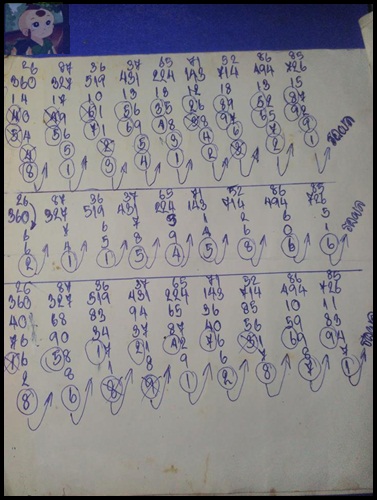 26 87 36 37 65 71 52 86 85
360 327 519 431 224 143 714 494 726
14 17 10 13 13 12 18 13 15
40 49 61 56 35 26 89 52 87
54 56 71 69 48 38 97 65 92
4 5 2 5 3 4 6 2 9
8 1 3 4 1 2 3 1
26 87 36 37 65 71 52 86 85
360 327 519 431 224 143 714 494 726
6 7 6 7 5 1 2 6 5
6 4 5 8 9 4 6 6 1
2 1 1 5 4 5 8 0 6
26 87 36 37 65 71 52 86 85
360 327 519 431 224 143 714 494 726
40 68 83 94 65 36 85 10 11
76 90 34 37 87 40 56 59 83
76 58 17 21 42 76 51 69 94
2 8 8 9 6 7 8 7
8 6 8 9 1 2 8 7 1